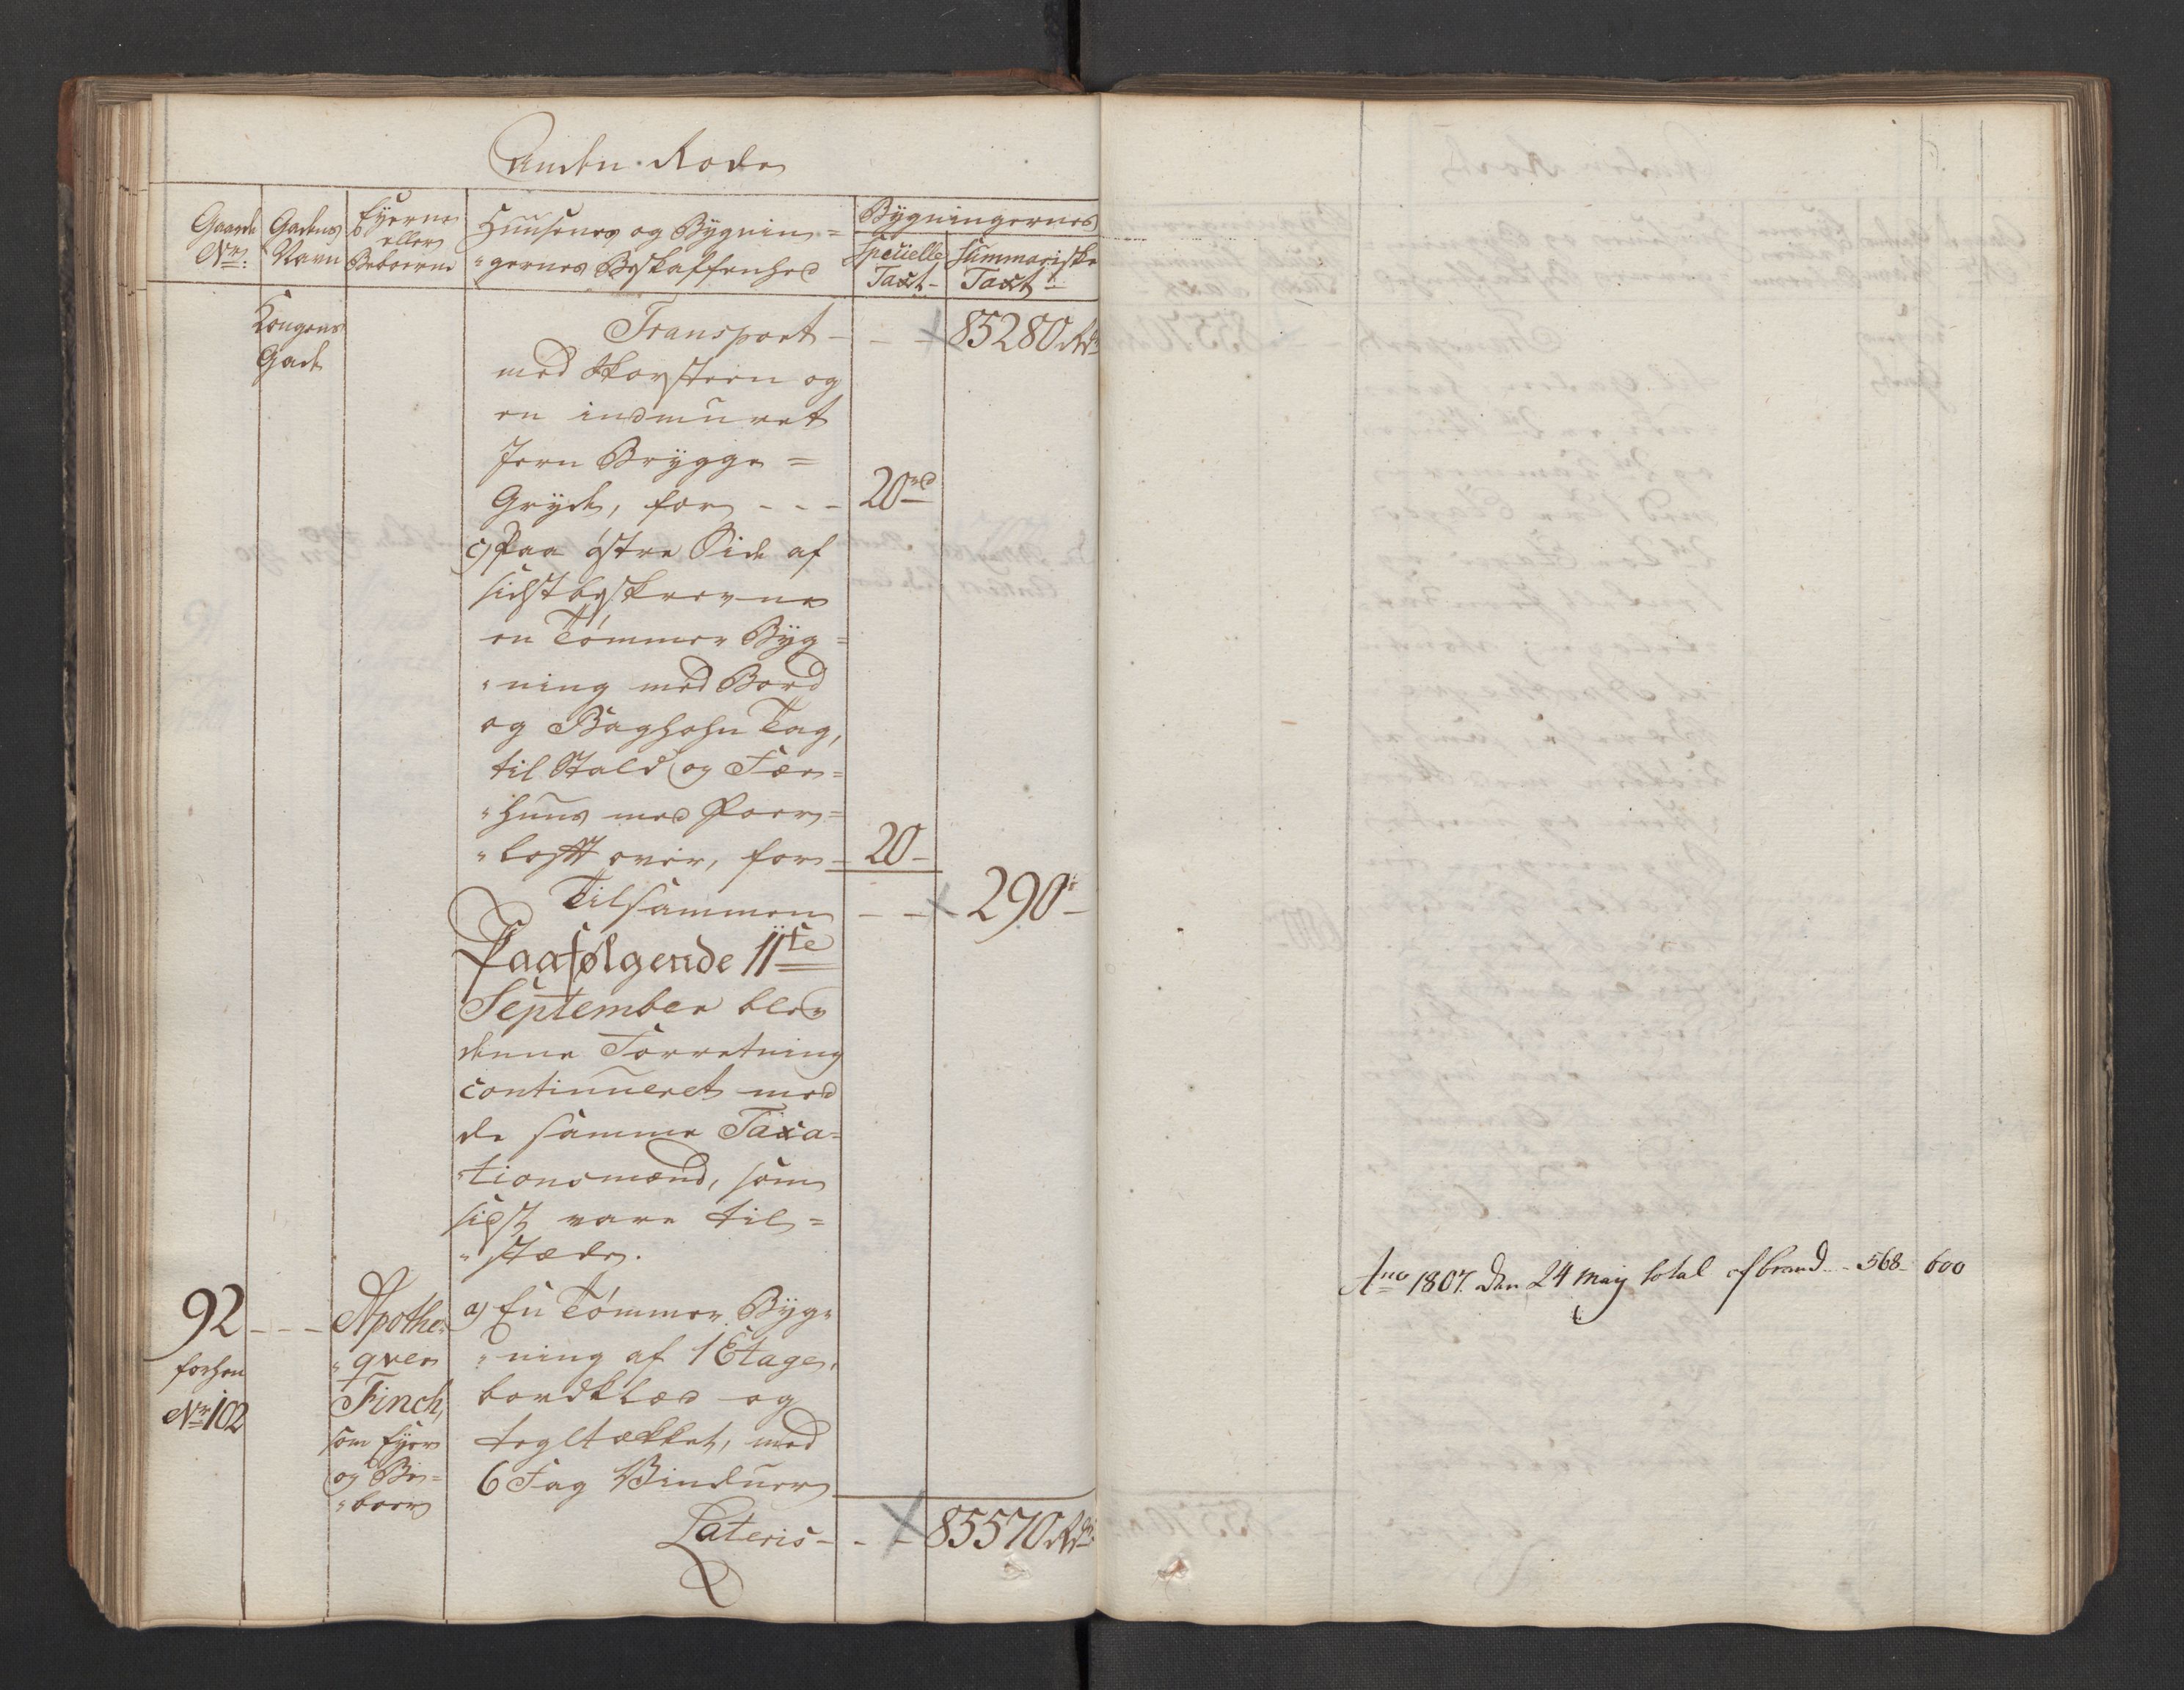 Anden Rode
Gaards Nr:
Gadens Navn
Eyerne eller Beboerne
Huusenes og Bygnin=
"gernes Beskaffenhed
Bygningernes
Speciélle Taxt
Summariske Taxt
Kongens
Gade
Transport - - - 85280 Rdr
med Skorsteen og
en indmuret
Jern Brygge=
Gryde, for - - - 20rd
c) Paa østre Side af
sidstbeskrevne
en Tømmer Byg=
"ning med Bord
og Baghohn Tag,
til Stald og Fæe=
"huus med Foer=
"loftt over, for - 20 -
Tilsammen - - - 290 -
Paafølgende 11te
September blev
denne Forretning
continueret med
de samme Taxa=
"tionsmænd, som
sidst vare til=
"stæde.
92 - - -
forhen
Nr 102
Apothe=
"qver
Finch,
som Eyer
og Be=
"boer
a) En Tømmer Byg=
"ning af 1 Etage,
bordklæd og
tegltækket, med
6 Fag Vinduer
Lateris - - - 85570 Rdr
Ano 1807. den 24 Maÿ total afbrand - 568 - 600